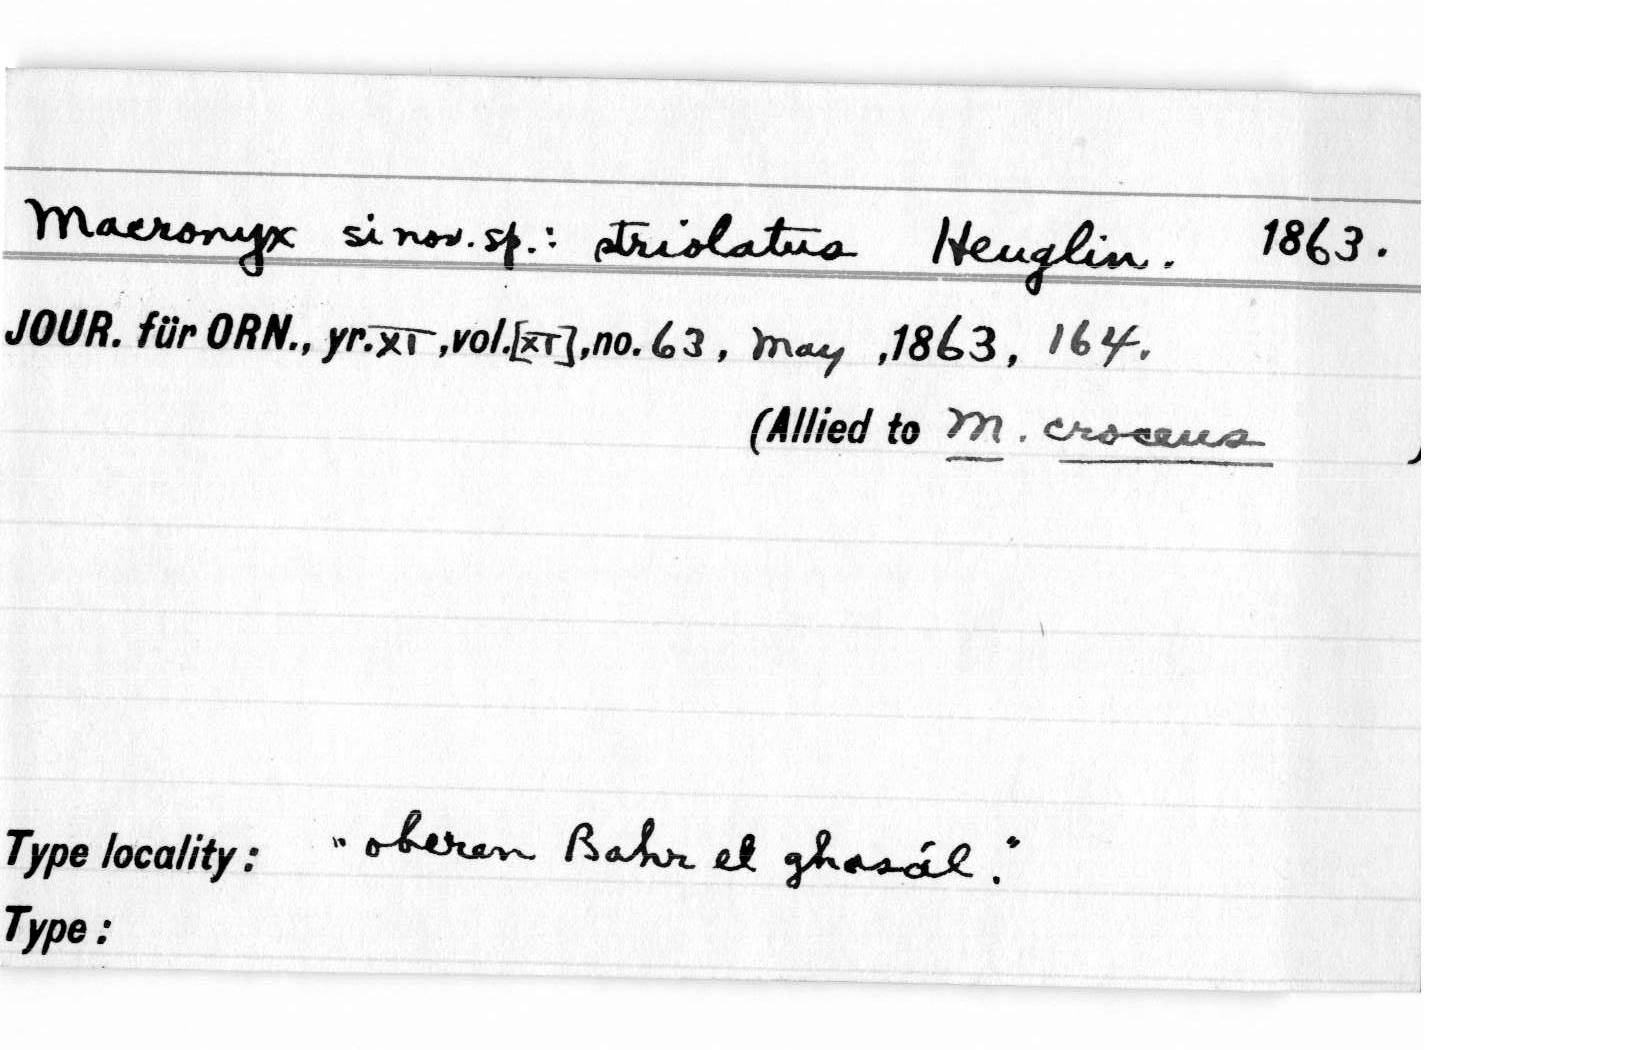 Macronyx si nov. sp.: striolatus Heuglin. 1863.
JOUR. für ORN., yr. XI, vol. [XI], no. 63, May, 1863, 164.
(Allied to M. croceus )
Type locality: "oberen Bahr el ghasál."
Type: